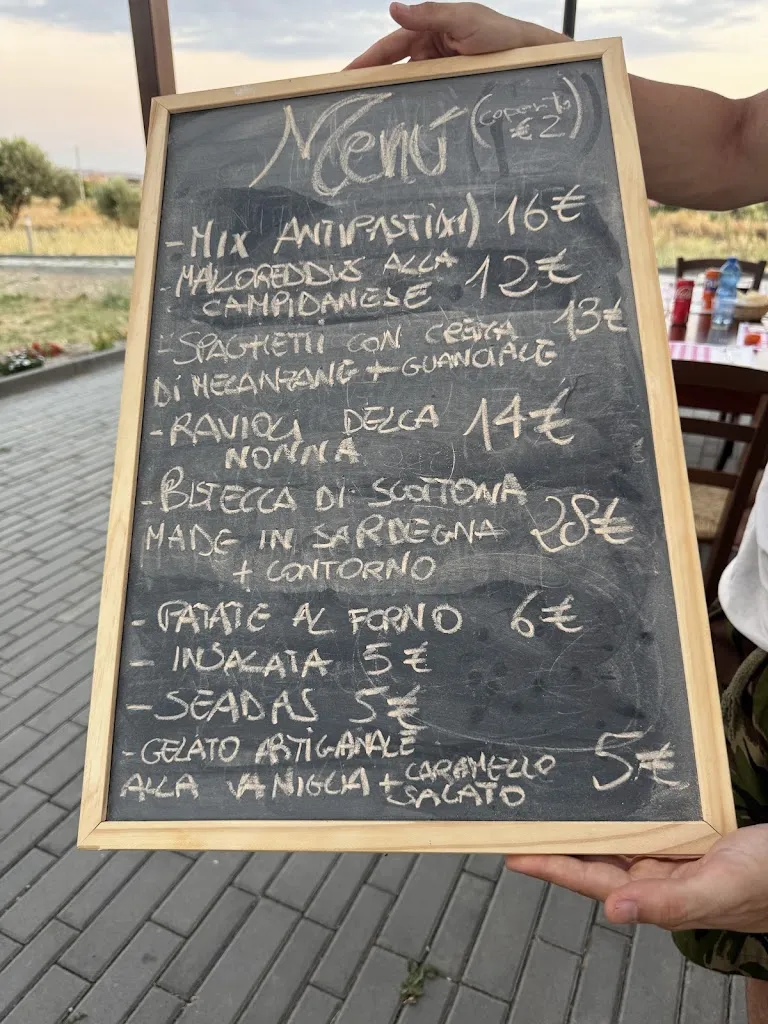 Menú (coperto €2)
- MIX ANTIPASTI(X1) 16€
- MALLOREDDUS ALLA 12€
CAMPIDANESE
- SPAGHETTI CON CREMA 13€
DI MELANZANE + GUANCIALE
- RAVIOLI DELLA 14€
NONNA
- BISTECCA DI SCOTTONA
MADE IN SARDEGNA 28€
+ CONTORNO
- PATATE AL FORNO 6€
- INSALATA 5€
- SEADAS 5€
- GELATO ARTIGIANALE
ALLA VANIGLIA + CARAMELLO 5€
SALATO